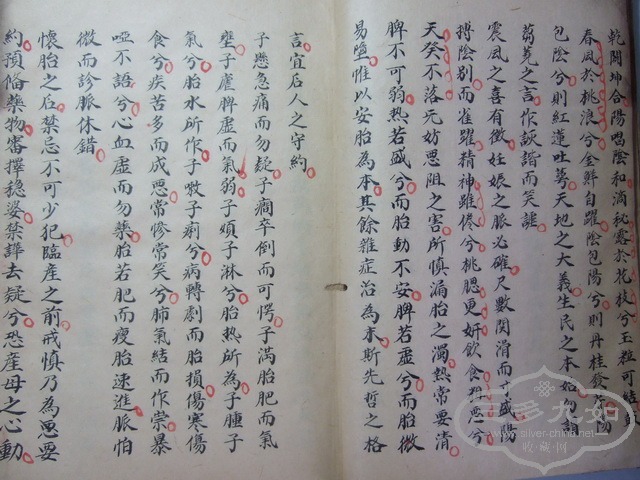 乾開坤合陽唱陰和滴秘露於花枝兮玉雅可結
春風於桃浪兮金鮮自躍陰包陽兮則丹桂發
包陰兮則紅蓮吐萼天地之大義生民之本始
蒭蕘之言作詼諧而笑謔
震夙之喜有徵妊娠之脉必確尺數関滑而寸盛陽
搏陰别而雀躍精神雖倦兮桃腮更妍飲食雖惡兮
天癸不落元妨惡阻之害所慎漏胎之濁熱常要清
脾不可弱熱若盛兮而胎動不安脾若虚兮而胎微
易墮惟以安胎為本其餘雜症治為末斯先哲之格
言宜后人之守約
子懸急痛而勿疑子癎卒倒而可愕子滿胎肥而氣
壅子虚脾虚而氣弱子煩子淋兮胎熱所為子腫子
氣兮胎水所作子嗽子痢兮病轉劇而胎損傷寒傷
食兮疾苦多而成惡常慘常笑兮肺氣結而作祟暴
啞不語兮心血虚而勿藥胎若肥而瘦胎速進脉怕
微而診脉休錯
懷胎之后禁忌不可少犯臨産之前戒慎乃為思要
約預俻藥物審擇穏婆禁譁去疑兮恐産母之心動
吉多九如
www.silver-china.net
收·藏·网